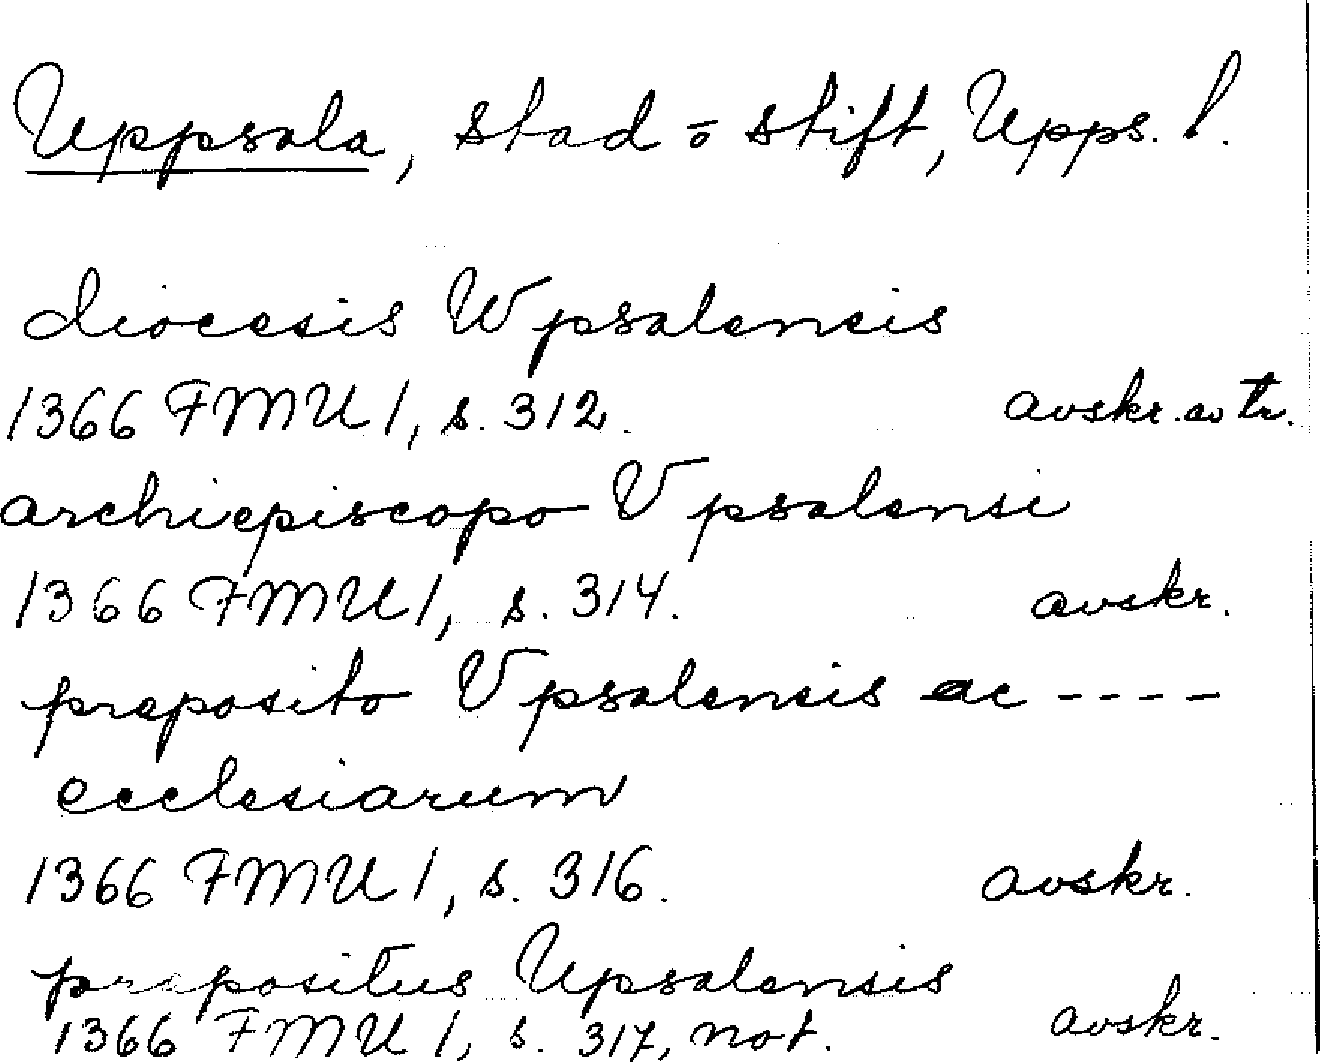 Uppsala, stad o stift, Upps. l.
diocesis Wpsalensis
1366 FMU 1, s. 312. avskr. av tr.
archiepiscopo Vpsalensi
1366 FMU 1, s. 314. avskr.
preposito Vpsalensis ac ----
ecclesiarum
1366 FMU 1, s. 316. avskr.
prepositus Upsalensis
1366 FMU 1, s. 317, not. avskr.